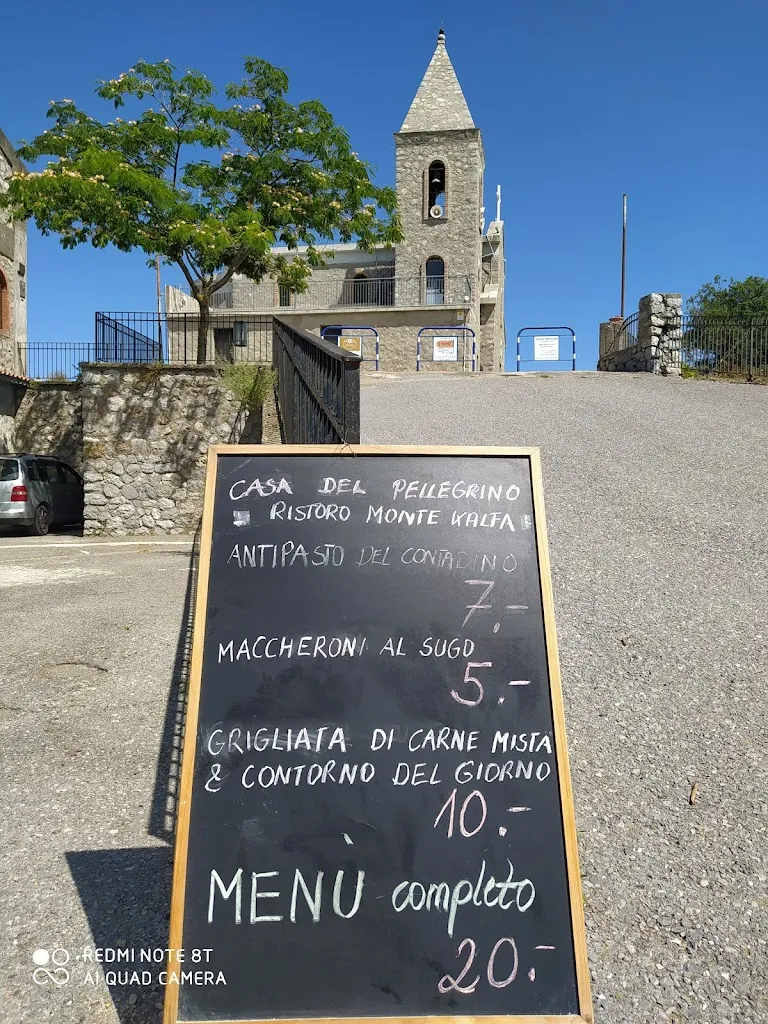 CASA DEL PELLEGRINO
RISTORO MONTE KALFA
ANTIPASTO DEL CONTADINO
7,-
MACCHERONI AL SUGO
5.-
GRIGLIATA DI CARNE MISTA
& CONTORNO DEL GIORNO
10.-
MENÙ completo
20.-
REDMI NOTE 8T
AI QUAD CAMERA